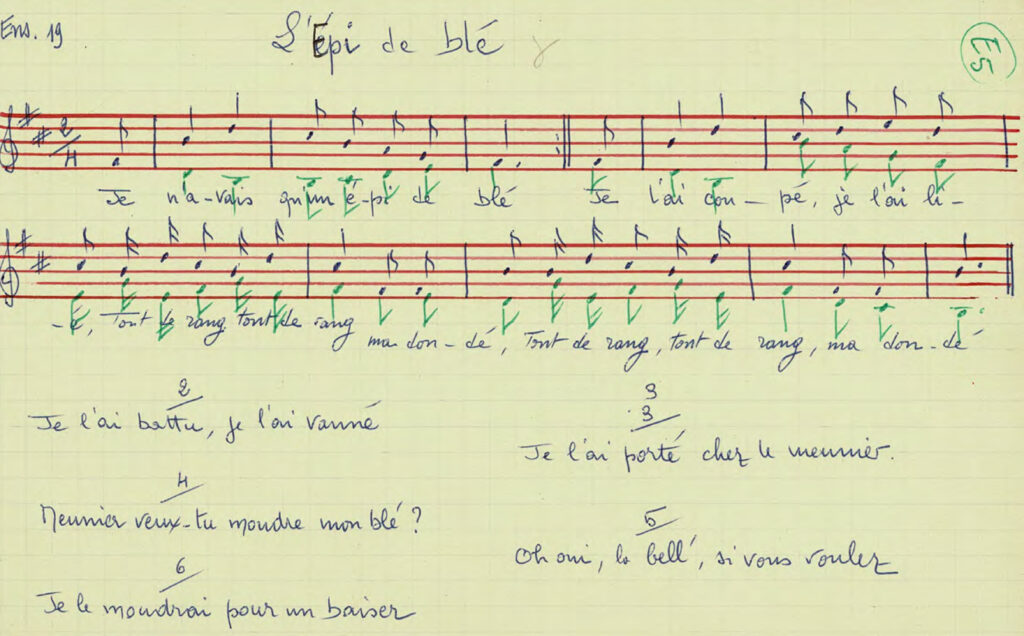 Ens. 19
L'Épi de blé
E5
2/4
Je n'a-vais qu'un é-pi de blé Je l'ai cou-pé, je l'ai li-
-é, Tont de rang tont de rang ma don-dé, Tont de rang, tont de rang, ma don-dé
2
Je l'ai battu, je l'ai vanné
3
3
Je l'ai porté chez le meunier.
4
Meunier veux-tu moudre mon blé ?
5
Oh oui, la bell', si vous voulez
6
Je le moudrai pour un baiser